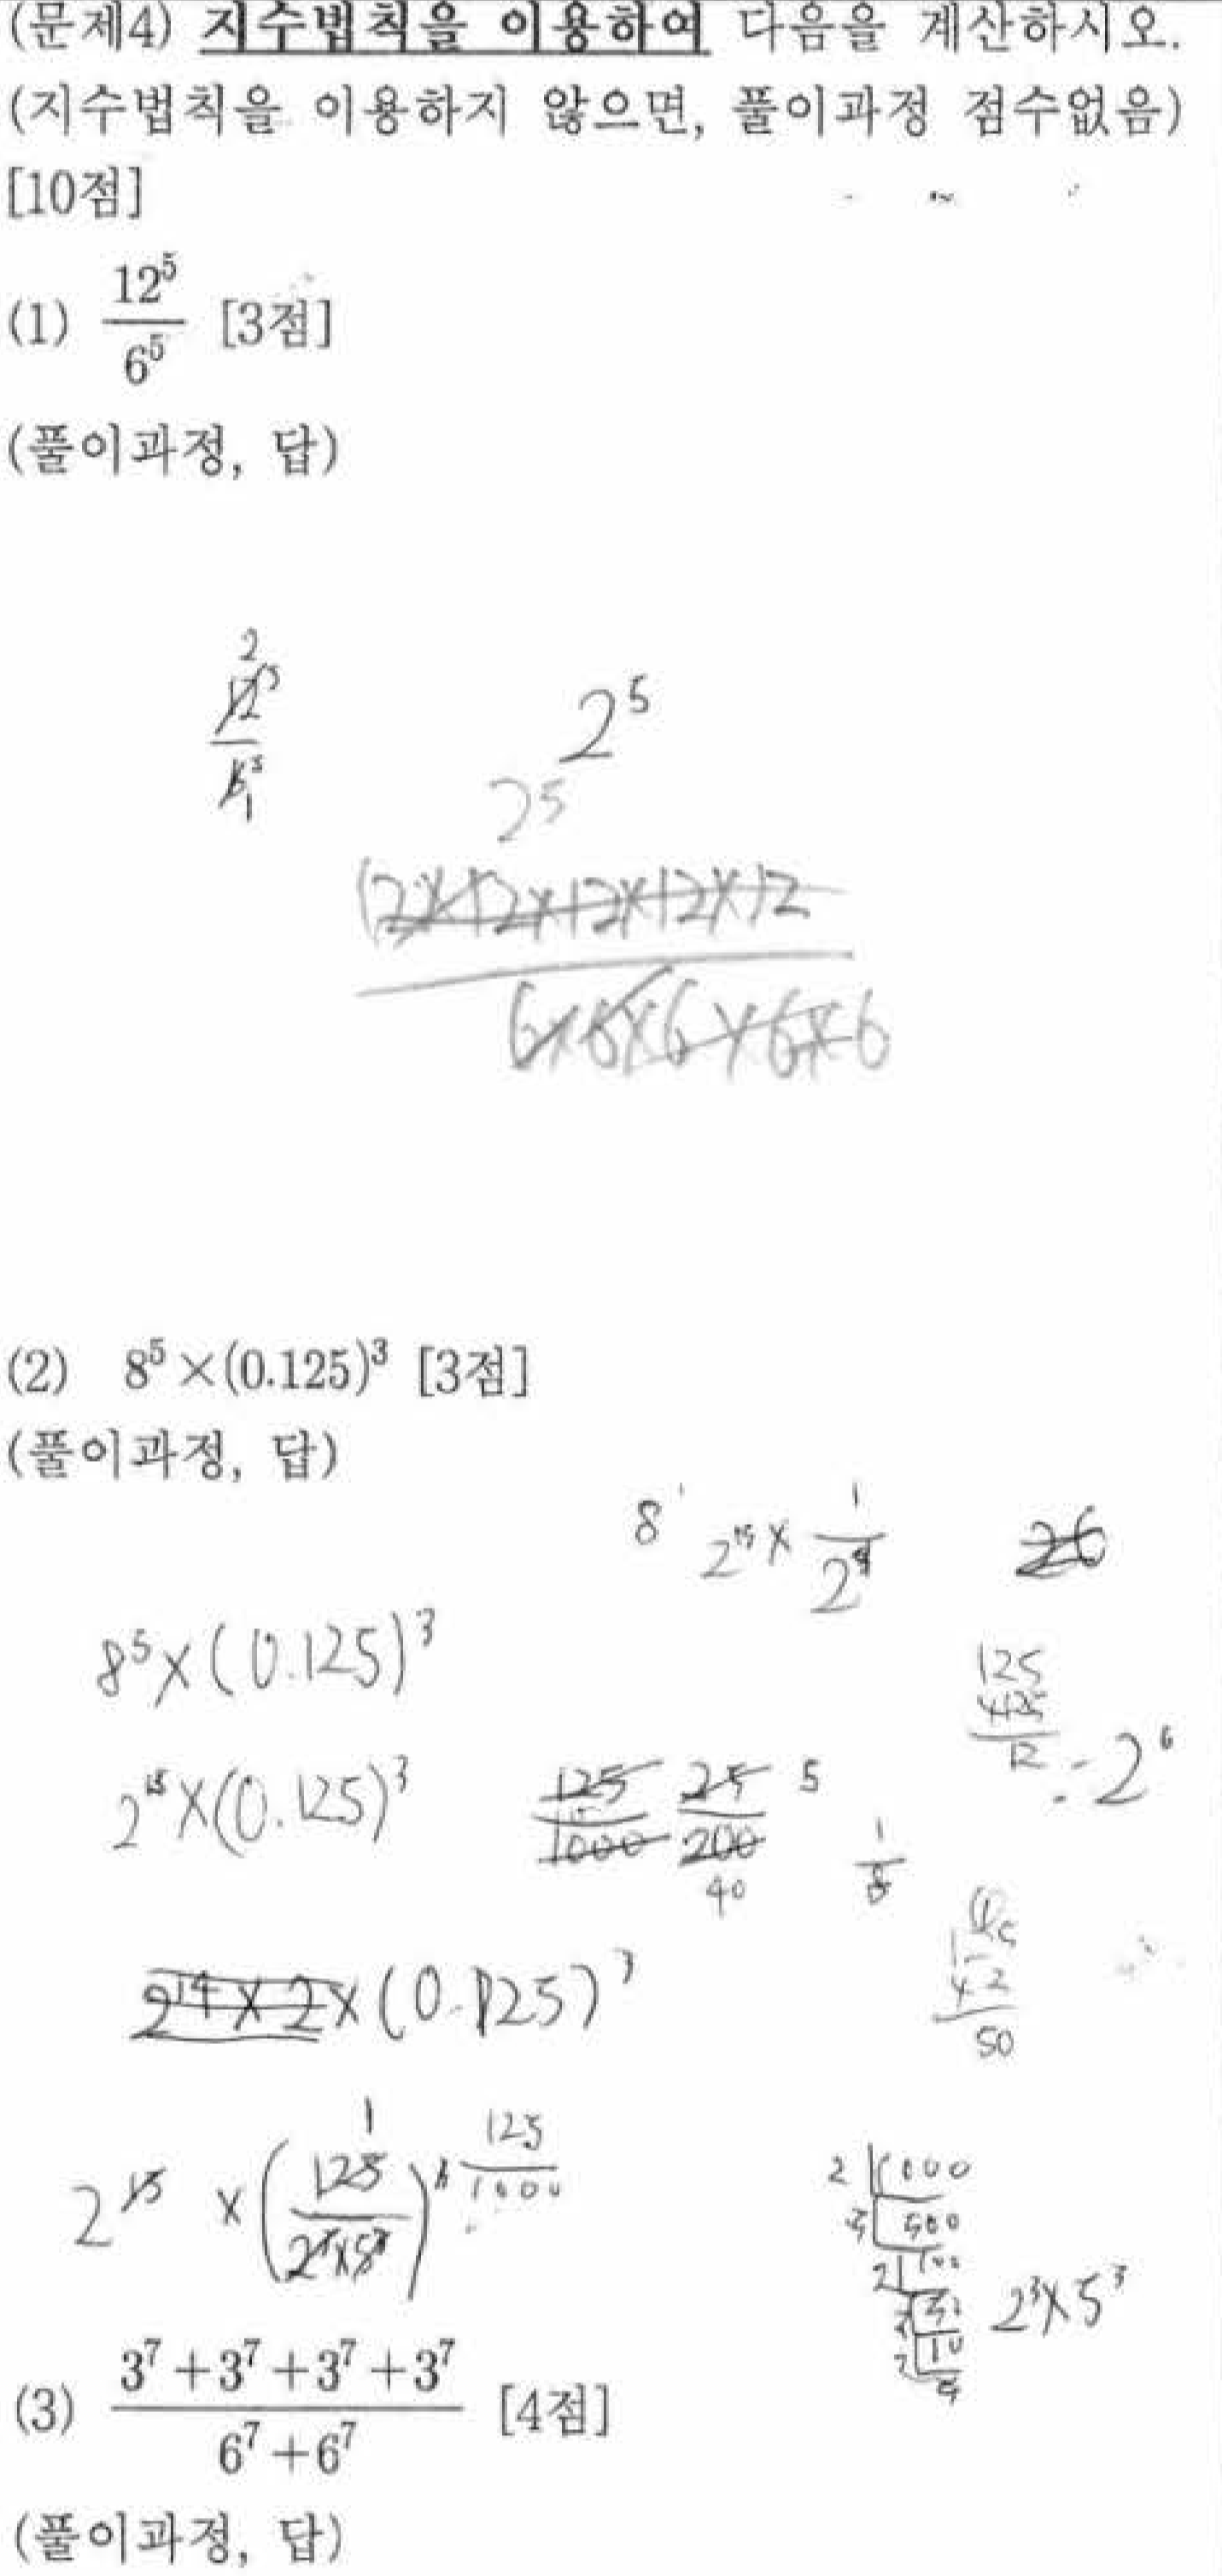 (문제4) 지수법칙을 이용하여 다음을 계산하시오.
(지수법칙을 이용하지 않으면, 풀이과정 점수없음)
[10점]
(1) 12⁵/6⁵ [3점]
(풀이과정, 답)
2
12⁵/6⁵
1
2⁵
2⁵
12×12×12×12×12
6×6×6×6×6
(2) 8⁵×(0.125)³ [3점]
(풀이과정, 답)
8 2¹⁵× 1/2⁹ 26
8⁵×(0.125)³
125
12
=2⁶
2¹⁵×(0.125)³ 125/1000 25/200 5
40
1/8
2¹⁴×2×(0.125)³
50
1
2¹⁵ ×(125/2³×5³) 125/1000
2 1000
5 500
2 100
10
2³×5³
(3) 3⁷+3⁷+3⁷+3⁷/6⁷+6⁷ [4점]
(풀이과정, 답)